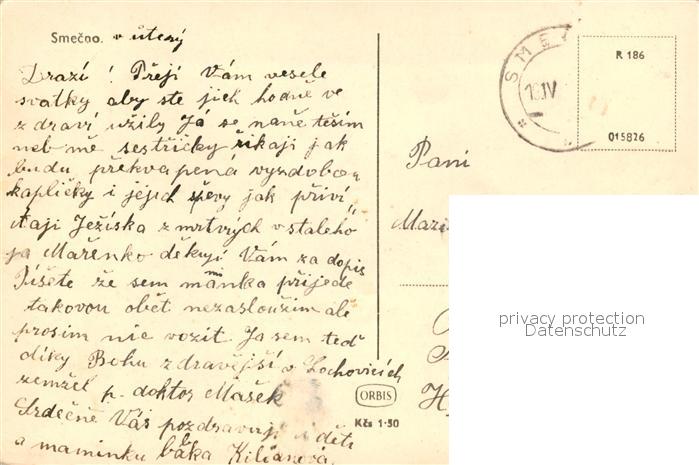 Smečno. v úterý
Drazí! Přeji Vám veselé
svatky aby ste jich hodně ve
zdraví užily Já se naně těším
neb mě sestřičky říkaji jak
budu překvapená vyzdobou
kapličky i jejich zpěvy jak přiví
taji Ježíska z mrtvých vstalého
ja Mařenko děkuji Vám za dopis
Píšete že sem maminka přijede
takovou obět nezasloužim ale
prosim nic vozit Ja sem teď
díky Bohu zdravější v Lochovicích
zemřel p. doktor Mašek
Srdečně Vás pozdravuji i děti
a maminku babka Kiliánová.
SME
18.IV
R 186
015826
Paní
ORBIS
Kčs 1·50
privacy protection
Datenschutz